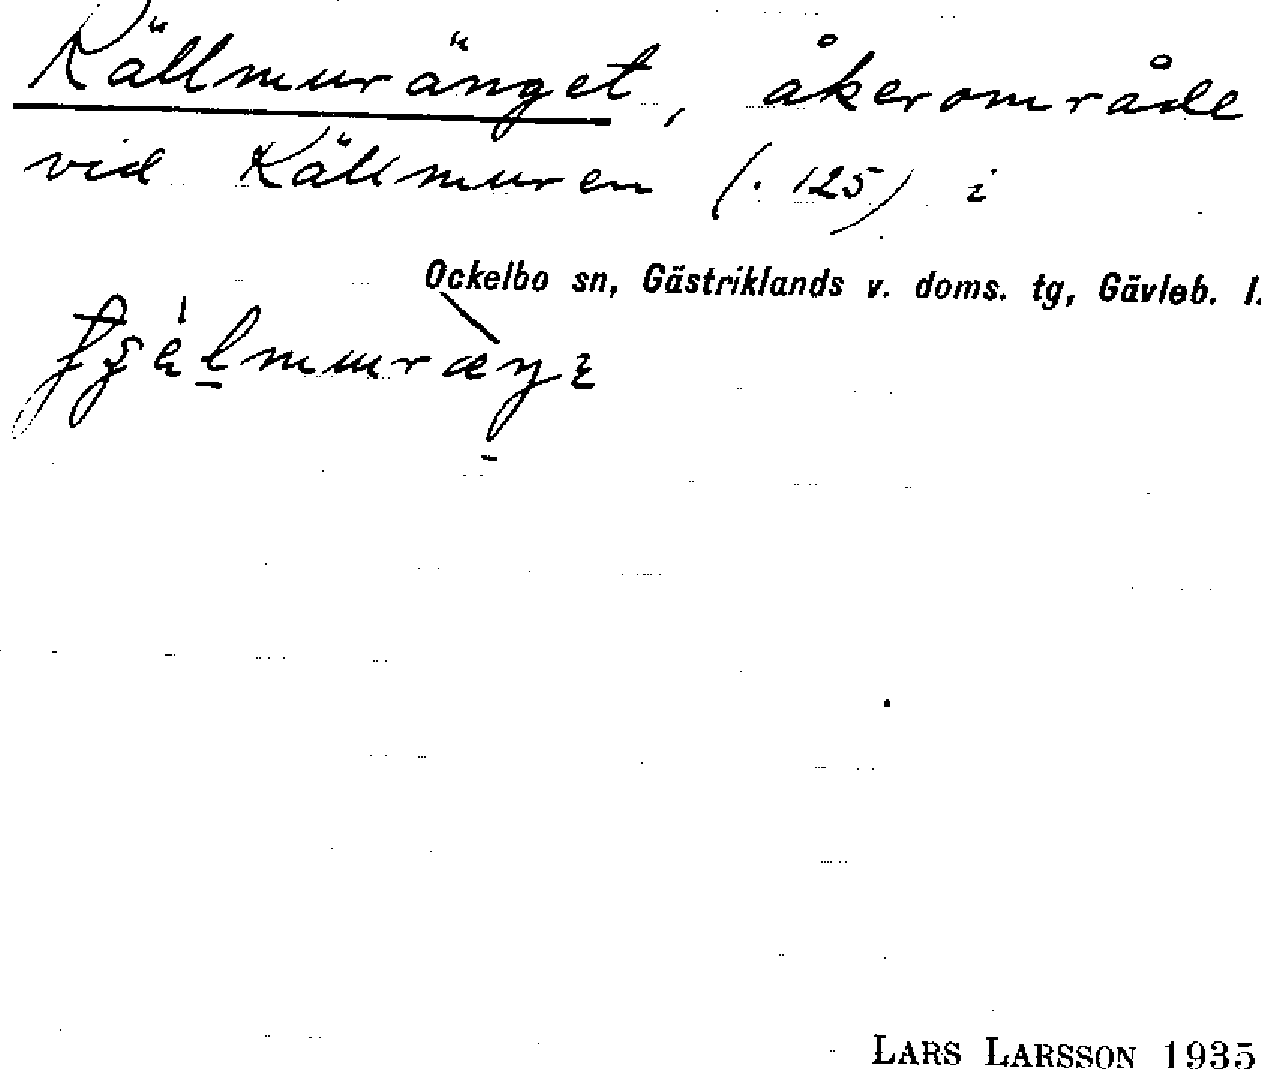 Källmuränget, åkerområde
vid Källmuren (. 125) i
Ockelbo sn, Gästriklands v. doms. tg, Gävleb. l.
LARS LARSSON 1935